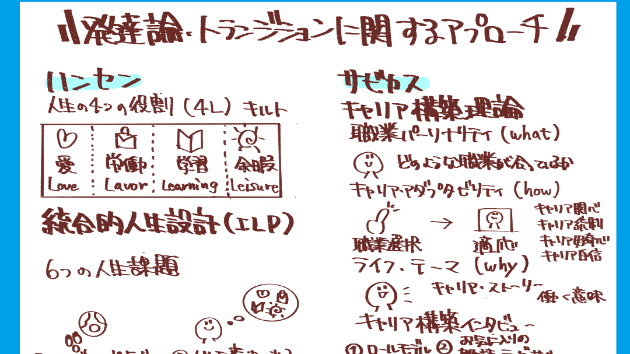 発達論・トランジションに関するアプローチ
ハンセン
人生の4つの役割(4L) キルト
愛 労働 学習 余暇
Love Lavor Learning Leisure
統合的人生設計(ILP)
6つの人生課題
サビカス
キャリア構築理論
職業パーソナリティ(what)
どのような職業が合ってるか
キャリア・アダプタビリティ(how)
職業選択 → 適応
キャリア関心
キャリア統制
キャリア好奇心
キャリア自信
ライフ・テーマ(why)
キャリア・ストーリー
働く意味
キャリア構築インタビュー
①ロールモデル ②お気に入りの